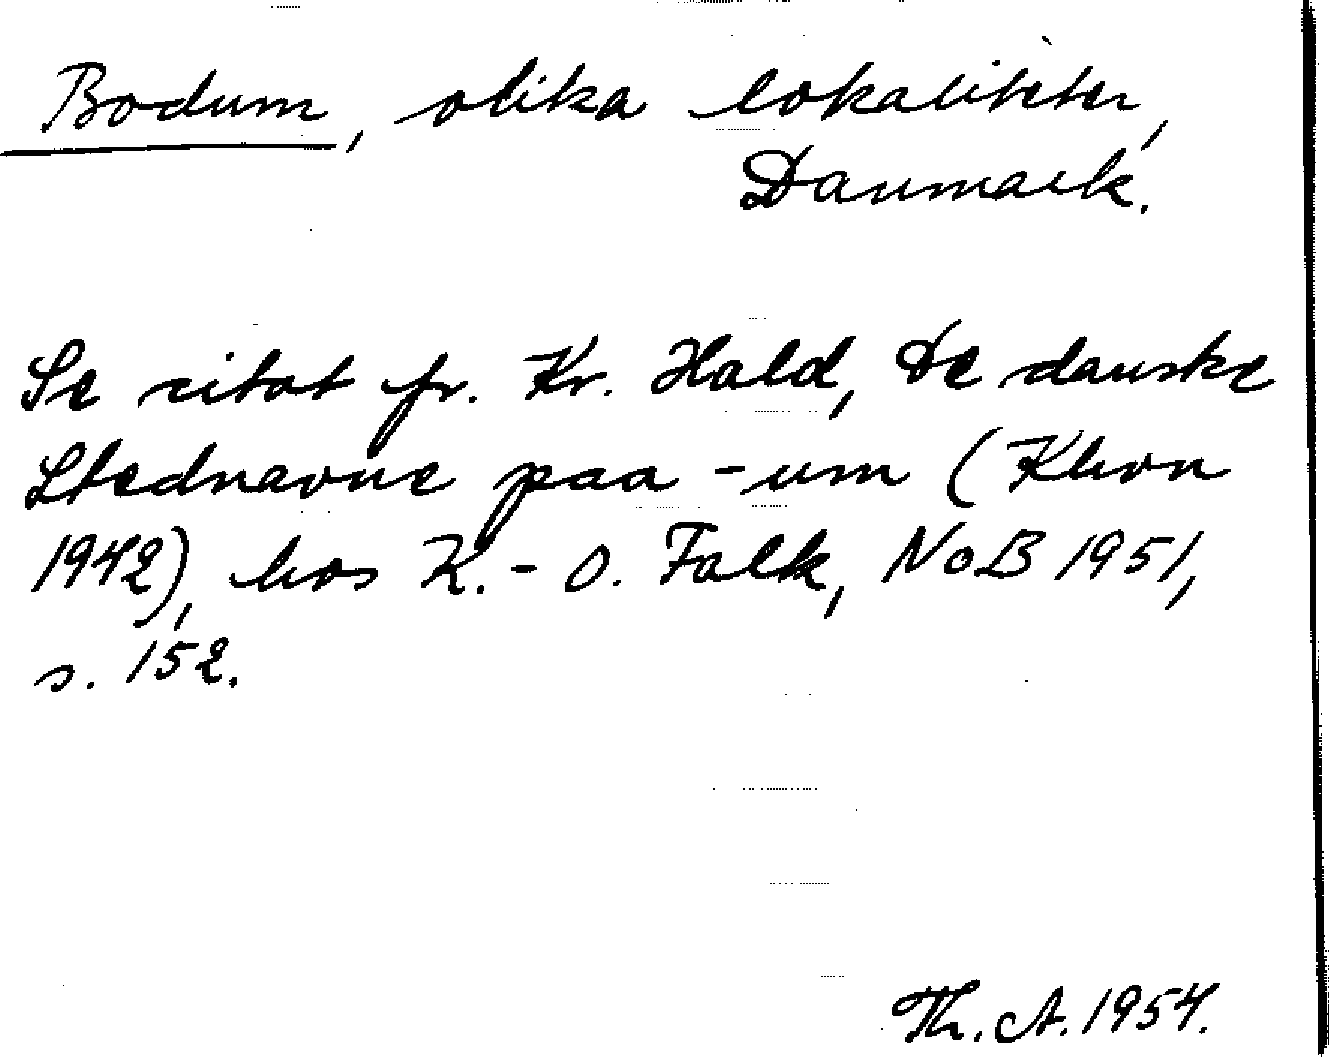 Bodum, olika lokaliteter,
Danmark.
Se citat fr. Kr. Hald, De danske
Stednavne paa -um (Khvn
1942), hos K.-O. Falk, NoB 1951,
s. 152.
Th. A. 1954.